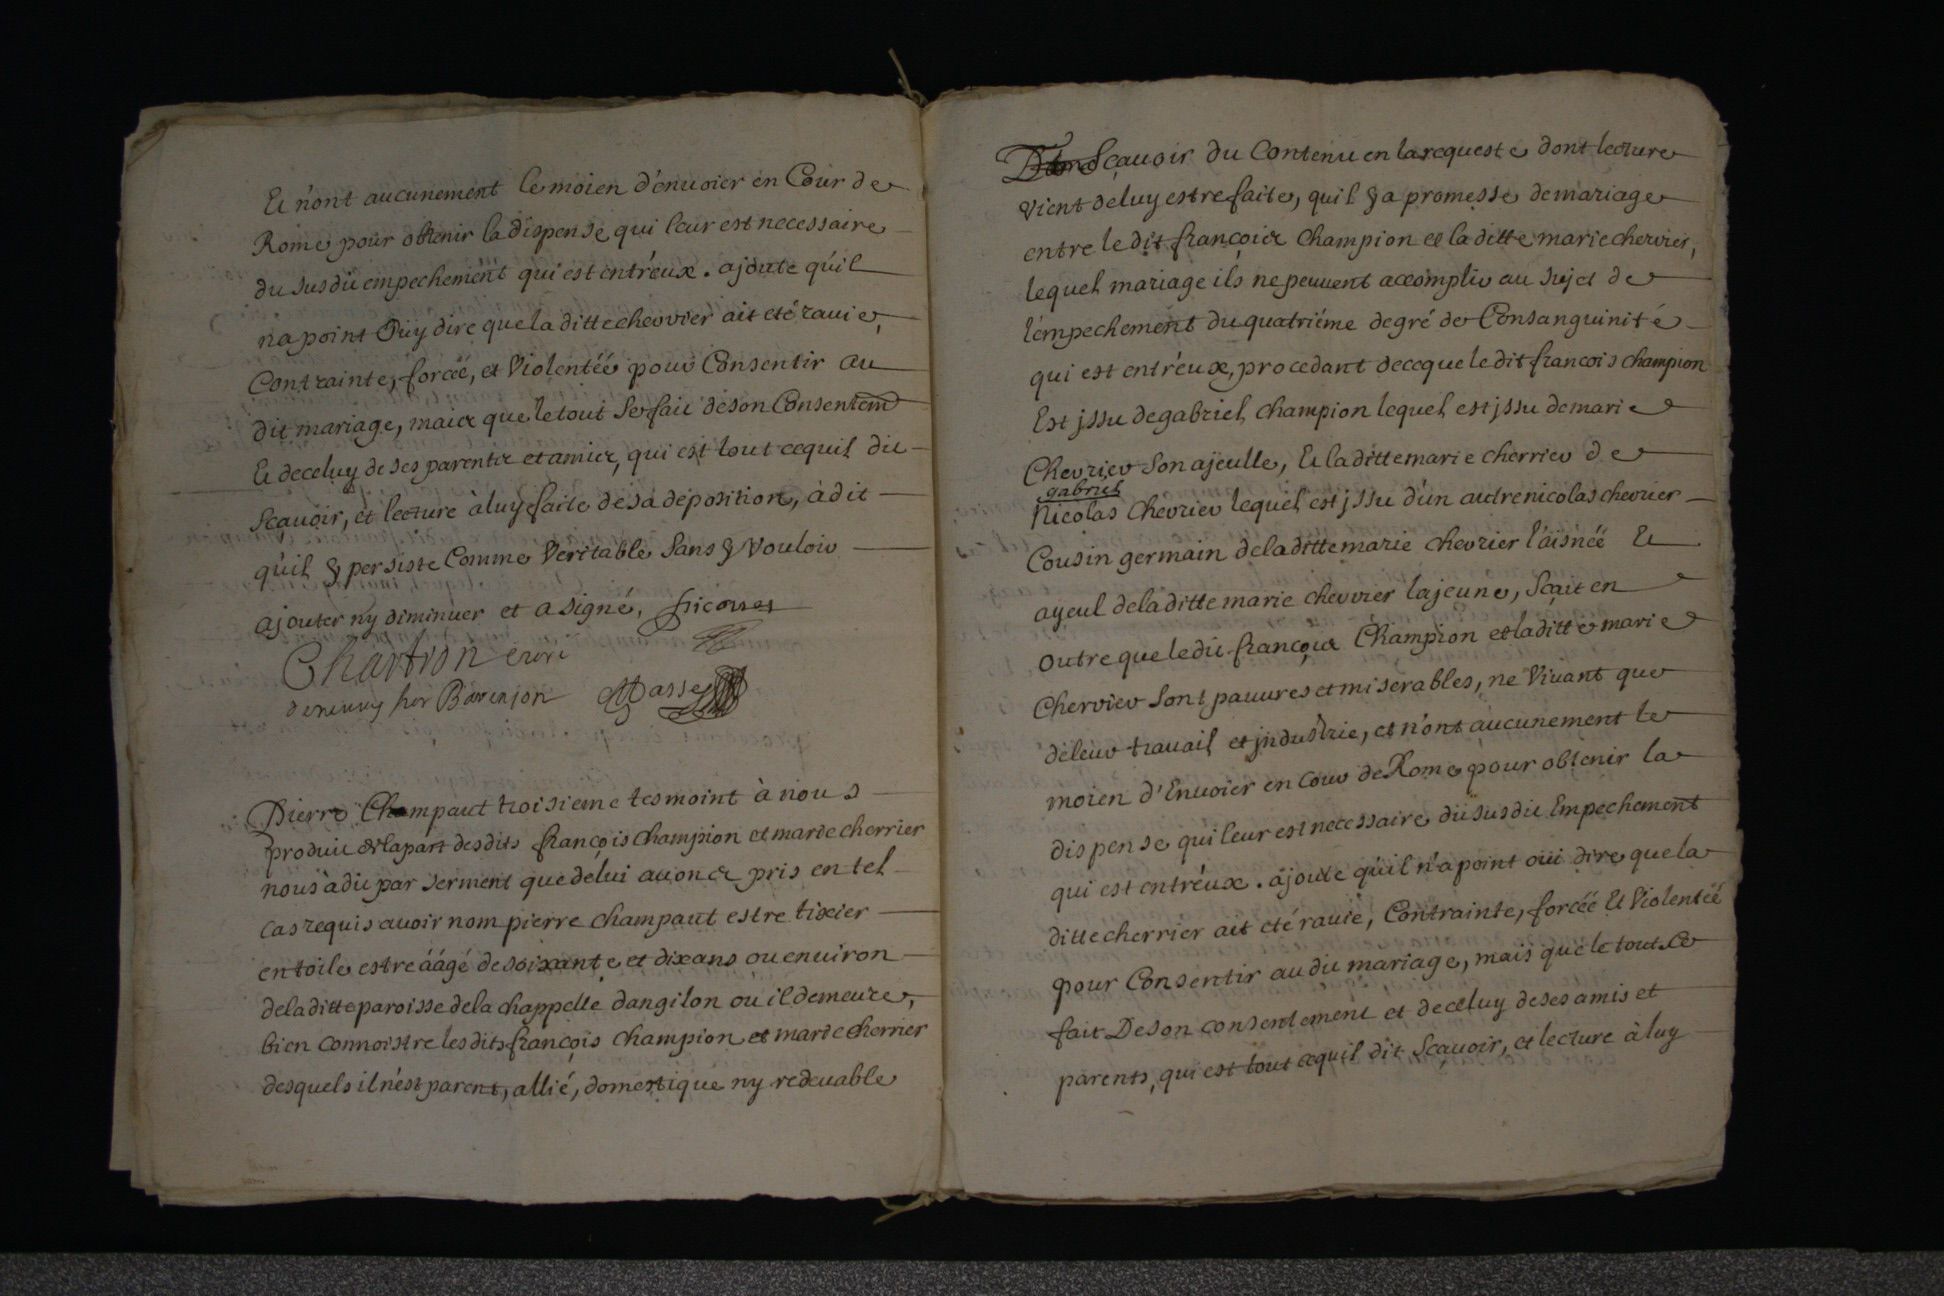 Et n'ont aucunement le moien d'enuoier en Cour de
Rome pour obtenir la dispense qui leur est necessaire
du susdit empechement qui est entr'eux. ajoute qu'il
na point Ouy dire que la ditte chevrier ait eté rauie,
Contrainte, forcéé, et Violentéé pour Consentir au
dit mariage, mais que le tout se fait de son Consentem
Et de celuy de ses parents et amis, qui est tout ce quil dit
Scauoir, et lecture à luy faite de sa deposition, à dit
qu'il y persiste Comme Veritable Sans y Vouloir
ajouter ny diminuer et a signé,
Chartron curé
de neuuy sur Barenjon Masse
Pierre Champaut troisieme tesmoint à nous
produit de la part desdits françois Champion et marie cherrier
nous à dit par serment que de lui auons pris en tel
cas requis auoir nom pierre champaut estre tixier
en toile estre áágé de soixante et dix ans ou enuiron
de la ditte paroisse de la chappelle dangilon où il demeure,
bien connoistre lesdits françois champion et marie cherrier
desquels il n'est parent, allié, domestique ny redeuable
Sçauoir du Contenu en la requeste dont lecture
vient de luy estre faite, quil y a promesse de mariage
entre le dit françois Champion et la ditte marie chevrier,
lequel mariage ils ne peuuent accomplir au sujet de
l'empechement du quatriéme degré de Consanguinité
qui est entr'eux, procedant de ce que le dit francois champion
Est jssu de gabriel champion lequel est jssu de marie
Chevrier Son ajeulle, Et la ditte marie cherrier de
gabriel
Nicolas Chevrier lequel est jssu d'un autre nicolas chevrier
Cousin germain de la ditte marie chevrier l'aisnéé Et
ayeul de la ditte marie chevrier la jeune, Sçait en
outre que le dit françois Champion et la ditte marie
Chervier Sont pauures et miserables, ne Viuant que
de leur trauail et jndustrie, et n'ont aucunement le
moien d'Enuoier en Cour de Rome pour obtenir la
dispense qui leur est necessaire du susdit Empechement
qui est entr'eux. ajoute qu'il n'a point oui dire que la
ditte cherrier ait eté rauie, Contrainte, forcéé Et Violentéé
pour Consentir au dit mariage, mais que le tout se
fait De son consentement et de celuy de ses amis et
parents, qui est tout ce quil dit Sçauoir, et lecture à luy